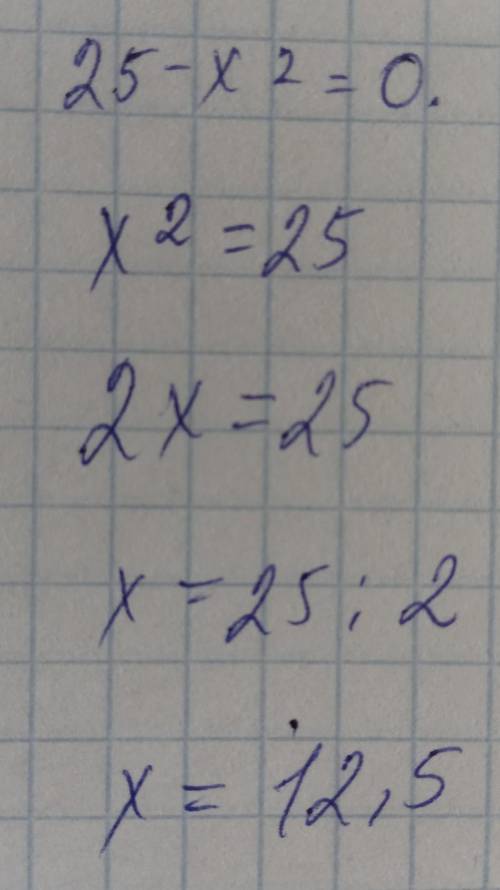 25 - x² = 0.
x² = 25
2x = 25
x = 25 : 2
x = 12,5